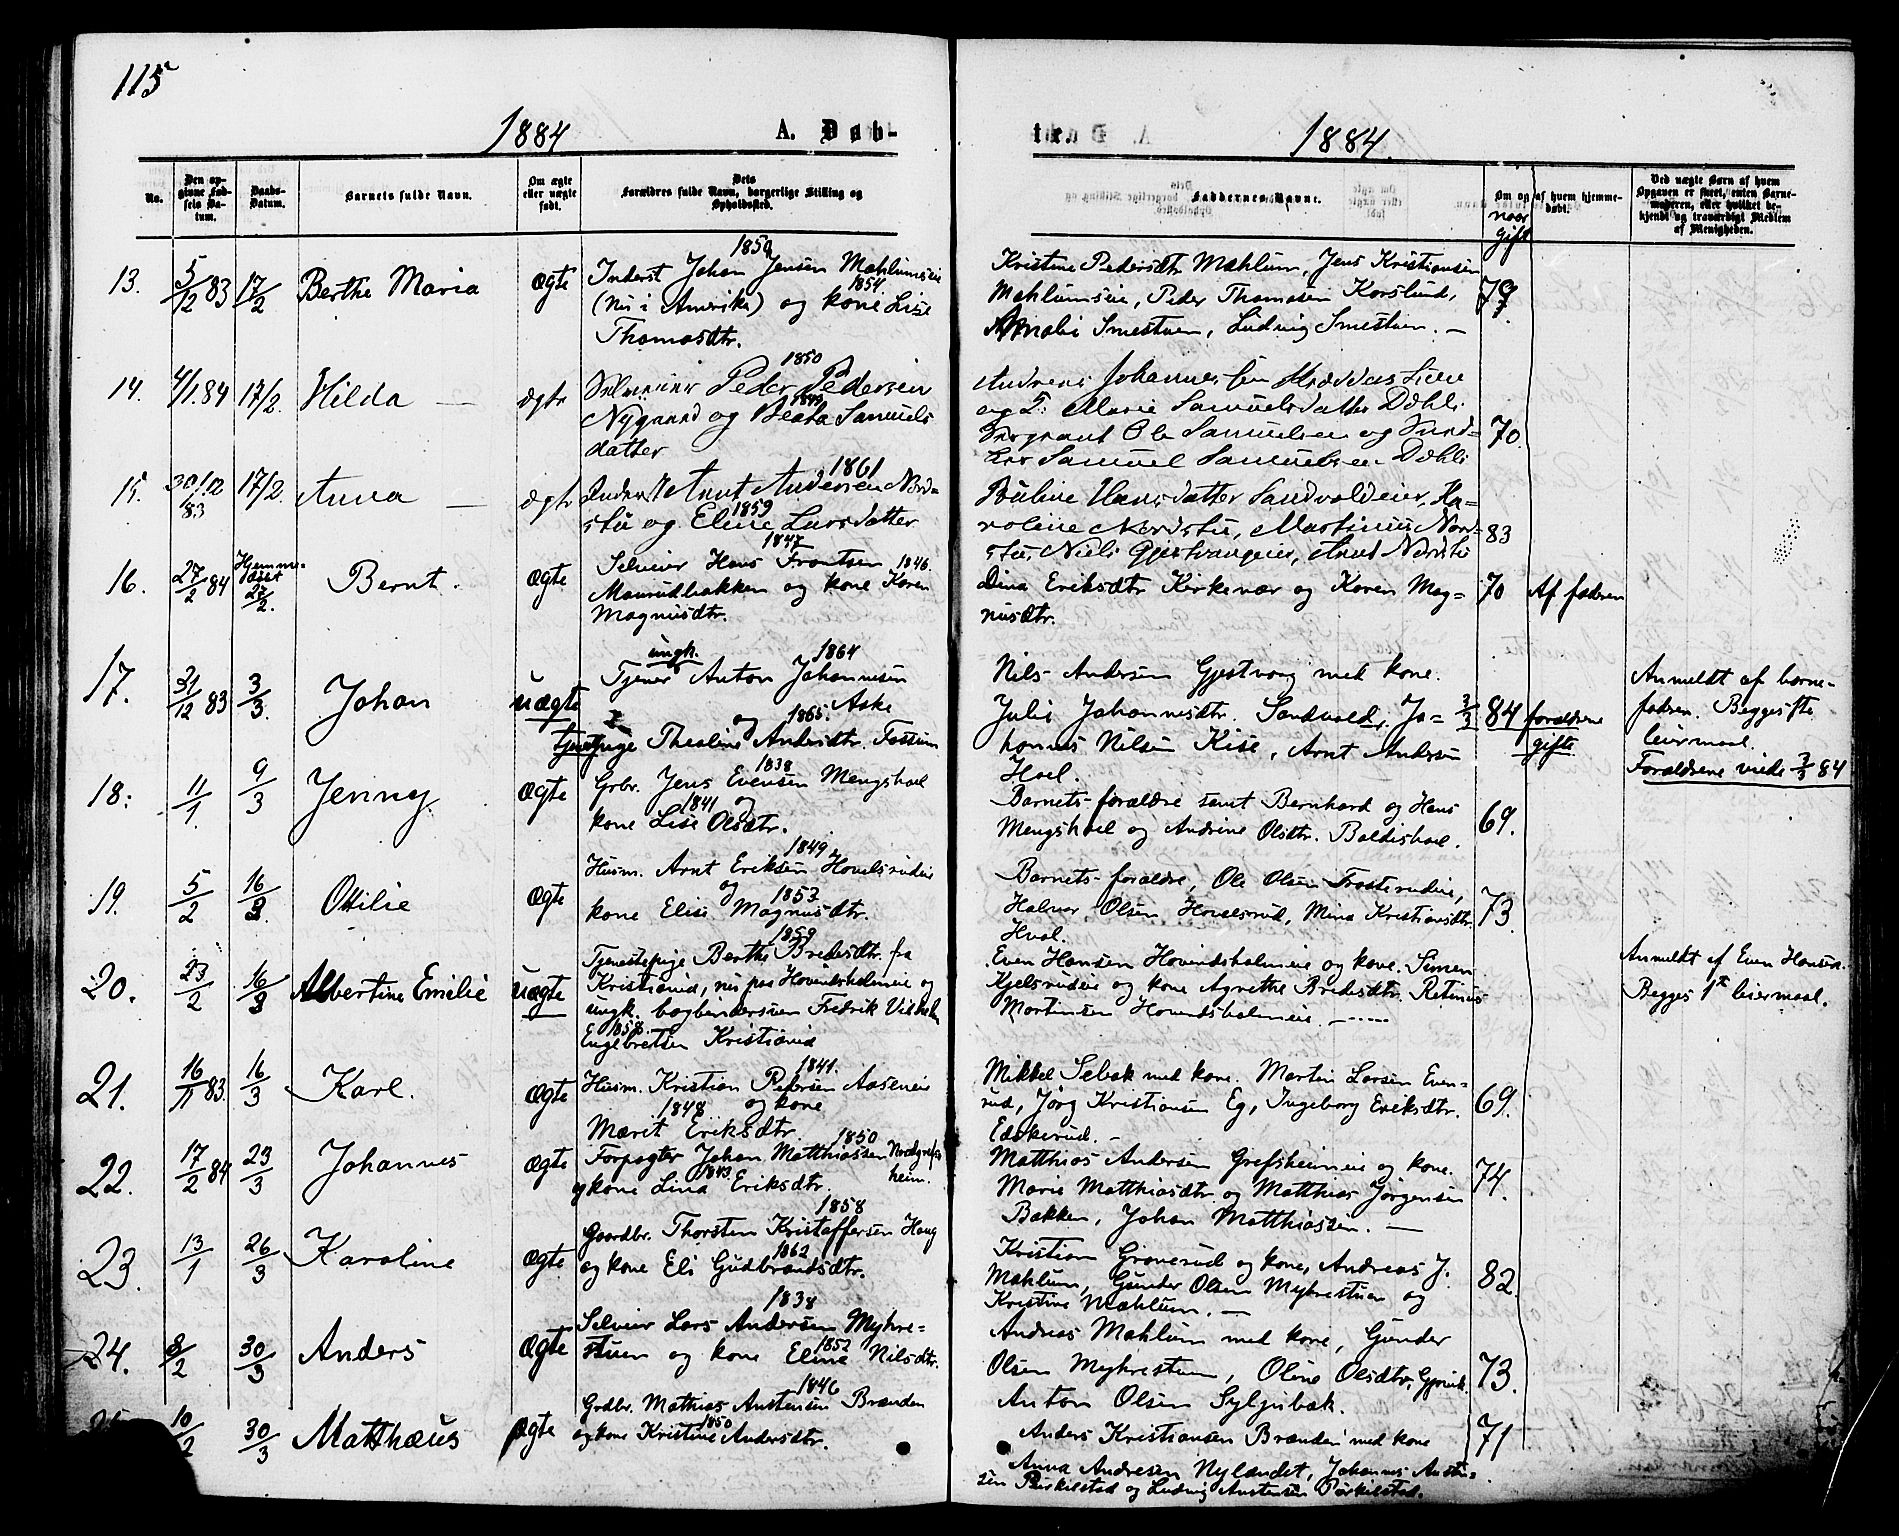 115
1884
A. Døb-
te.
1884.
No.
Den op-
givne Fød-
sels Da-
tum.
Daabs-
Datum.
Barnets fulde Navn.
Om ægte
eller uægte
født.
Dets
Forældres fulde Navn, borgerlige Stilling og
Opholdssted.
Faddernes Navne.
Om og af hvem hjemme-
døbt.
naar
gift
Ved uægte Børn af hvem
Opgaven er skeet, enten Barne-
moderen, eller hvilket be-
kjendt og troværdigt Medlem
af Menigheden.
13.
5/12 83
17/2
Berthe Maria
Ægte
1850
Inderst Johan Jensen Mæhlumseie
1854
(Nu i Amerika) og kone Lise
Thomasdtr.
Kristine Pedersdtr. Mæhlum, Jens Kristiansen
Mæhlumseie, Peder Thomasen Korslund,
Smestuen, Ludvig Smestuen. —
79.
14.
4/1.84
17/2.
Hilda —
ægte
1850
Peder Pedersen
Nygaard og Beata Samuels
datter
Johannes
og Marie Samuelsdatter Dæhli
Ole Samuelsen og
Samuel Samuelsen Dæhli
70.
15.
30/12
83
17/2.
Anna —
ægte
1861
Inderst Arnt Andersen Nord-
1859
stu og Eline Larsdatter
Pauline Hansdatter Sandvoldeier, Ka-
roline Nordstu, Martinus Nord-
stu, Niels Gjestvangeier, Arnt Nordstu
83
16.
27/2 84
Hjemme-
døbt
27/2.
Bernt.
Ægte
1847
Selveier Hans Frantsen 1846.
Maurudbakken og kone Karen
Magnusdtr.
Dina Eriksdtr Kirkevær og Karen Mag=
nusdtr.
70
Af faderen
17.
31/12 83
3/3.
Johan
Uægte
ungk. 1864
Tjener Anton Johannesen
og 1865. Aske
tjenepige Thealine Andersdtr. Fossum
Nils Andersen Gjestvang med kone.
Julie Johannesdtr. Sandvold, Jo=
hannes Nilsen Kise, Arnt Andersen
Hoel.
3/3 84
forældrene
gifte
Anmeldt af barne-
fadren. Begges 1ste
leiermaal.
Forældrene viede 3/3 84
18.
11/1.
9/3
Jenny.
Ægte
1838
Grbr. Jens Evensen Mengshoel
1841 og
kone Lise Olsdtr.
Barnets forældre samt Bernhard og Hans
Mengshoel og Andrine Olsdtr. Baldishoel.
69.
19.
5/2
16/3.
Ottilie
Ægte
1849
Husm. Arnt Eriksen Hovelsrudeie
og 1853
kone Elise Magnusdtr.
Barnets forældre, Ole Olsen Frosterudeie,
Halvor Olsen Hovelsrud, Mina Kristiansdtr.
Hval.
73.
20.
23/2
16/3
Albertine Emilie
Uægte
1859
Tjenestepige Berthe Bredesdtr. fra
Kristiania, nu paa Hovindsholmeie og
ungk. bogbindersven Fredrik Vilhelm
1858.
Engebretsen Kristiania
Even Hansen Hovindsholmeie og kone. Simen
Kjelsrudeie og kone Agnethe Bredesdtr. Retinius
Mortensen Hovindsholmeie. —
Anmeldt af Even Hansen.
Begges 1ste leiermaal.
21.
16/11 83.
16/3
Karl.
Ægte
1841.
Husm. Kristian Pedersen Aaseneie
1848 og kone
Marit Eriksdtr.
Mikkel Sebak med kone, Martin Larsen Even-
rud, Jörg Kristiansen Eg, Ingeborg Eriksdtr.
Edskerud. —
69.
22.
17/2 84
23/3
Johannes
Ægte
1850
Forpagter Johan Matthiassen Nordgrefs
1843 heim.
og kone Lina Eriksdtr.
Matthias Andersen Grefsheimeie og kone.
Marie Matthiasdtr og Matthias Jörgensen
Bakken, Johan Matthiassen. —
74.
23.
13/1
26/3
Karoline
Ægte
1858
Gaardbr. Thorsten Kristoffersen Haug
1862
og kone Eli Gudbrandsdtr.
Kristian Gronerud og kone, Andreas J.
Mæhlum, Gunder Olsen Myhrestuen og
Kristine Mæhlum. —
82.
24.
8/2
30/3
Anders
Ægte
1838
Selveier Lars Andersen Myhre-
1852
stuen og kone Eline Nilsdtr.
Andreas Mæhlum med kone, Gunder
Olsen Myhrestuen, Oline Olsdtr. Gjøvik.
Anton Olsen Syljubak.
73.
10/2
30/3
Matthæus
Ægte
1846
Grdbr. Mathias Austensen Brænden
1850
og kone Kristine Andersdtr.
Anders Kristiansen Brænden med kone
Anna Andresen Nylandet, Johannes Austen-
sen Pirkilstad og Ludvig Austensen Pirkilstad.
71